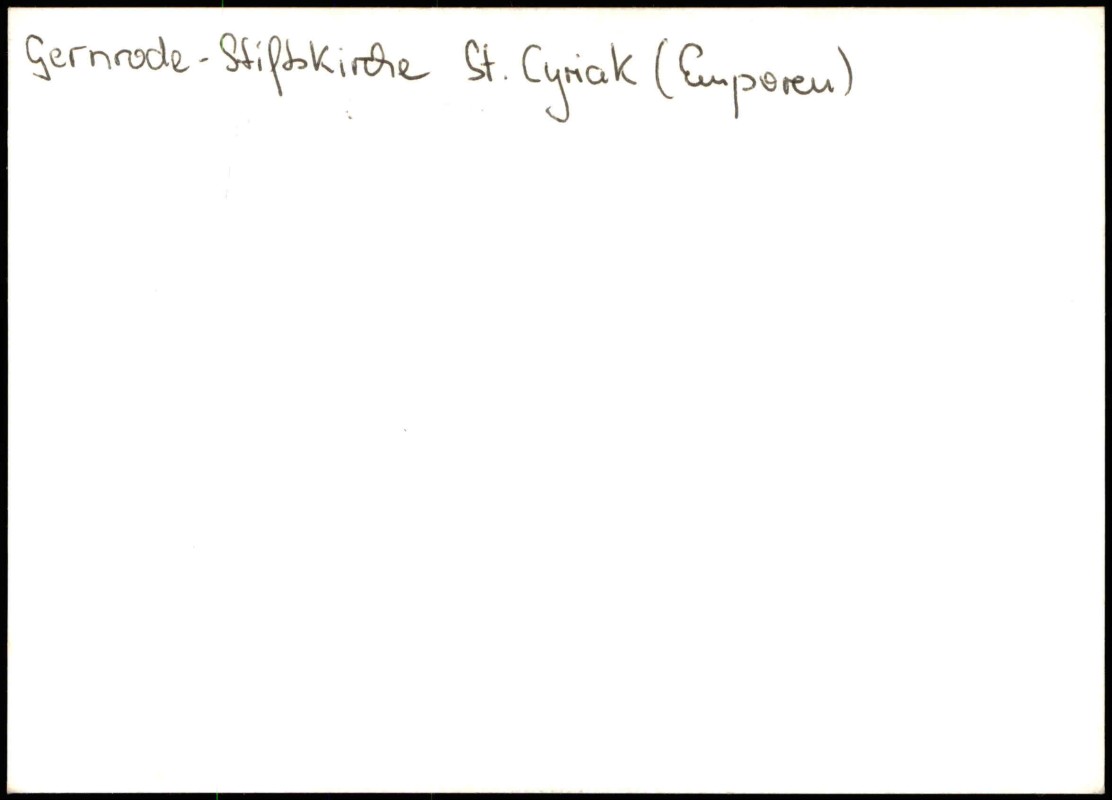 Gernrode - Stiftskirche St. Cyriak (Emporen)